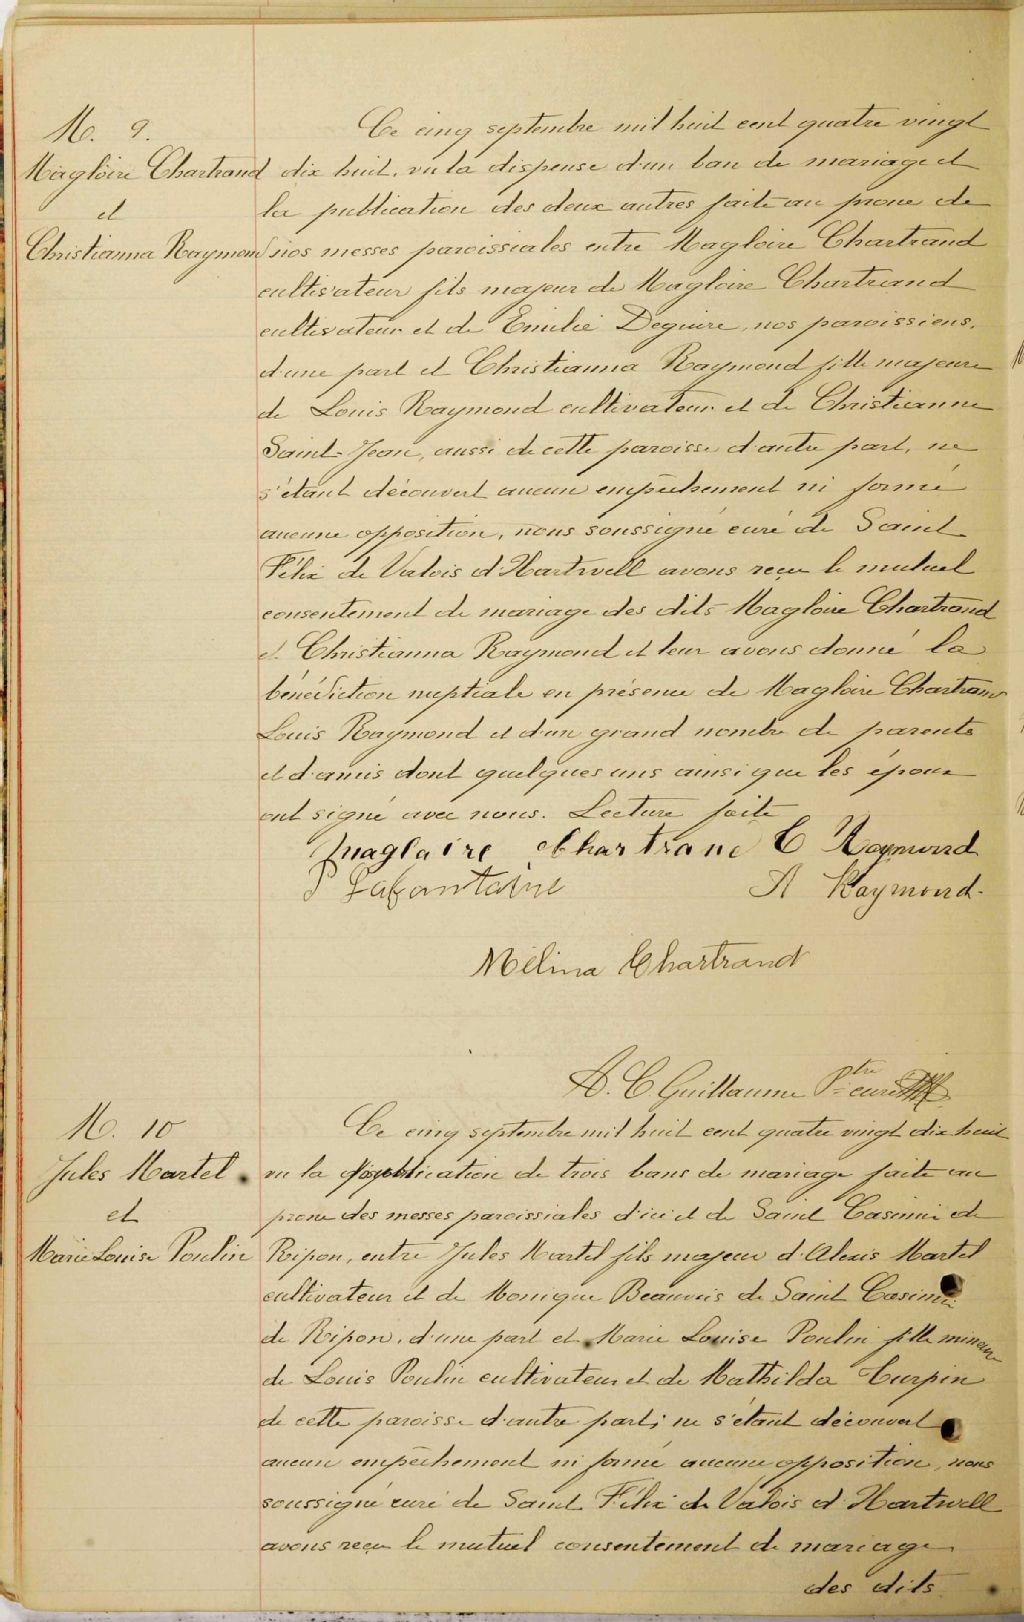 M. 9.
Magloire Chartrand
et
Christianna Raymond
Ce cinq septembre mil huit cent quatre vingt
dix huit, vu la dispense d'un ban de mariage et
la publication des deux autres faite au prone de
nos messes paroissiales entre Magloire Chartrand
cultivateur fils majeur de Magloire Chartrand
cultivateur et de Emilie Deguire, nos paroissiens,
d'une part et Christianna Raymond fille majeure
de Louis Raymond cultivateur et de Christianne
Saint-Jean, aussi de cette paroisse d'autre part, ne
s'étant découvert aucun empêchement ni formé
aucune opposition, nous soussigné curé de Saint
Félix de Valois d'Hartwell avons reçu le mutuel
consentement de mariage des dits Magloire Chartrand
et Christianna Raymond et leur avons donné la
bénédiction nuptiale en présence de Magloire Chartrand
Louis Raymond et d'un grand nombre de parents
et d'amis dont quelques uns ainsi que les époux
ont signé avec nous. Lecture faite
Magloire Chartrand C Raymond
P Lafontaine A Raymond.
Mélina Chartrand
A. C Guillaume Ptre curé
M. 10
Jules Martel
et
Marie Louise Poulin
Ce cinq septembre mil huit cent quatre vingt dix huit
vu la publication de trois bans de mariage faite au
prone des messes paroissiales d'ici et de Saint Casimir de
Ripon, entre Jules Martel fils majeur d'Alexis Martel
cultivateur et de Monique Beauvais de Saint Casimir
de Ripon, d'une part et Marie Louise Poulin fille mineure
de Louis Poulin cultivateur et de Mathilda Turpin
de cette paroisse d'autre part; ne s'étant découvert
aucun empêchement ni formé aucune opposition, nous
soussigné curé de Saint Félix de Valois d'Hartwell
avons reçu le mutuel consentement de mariage
des dits